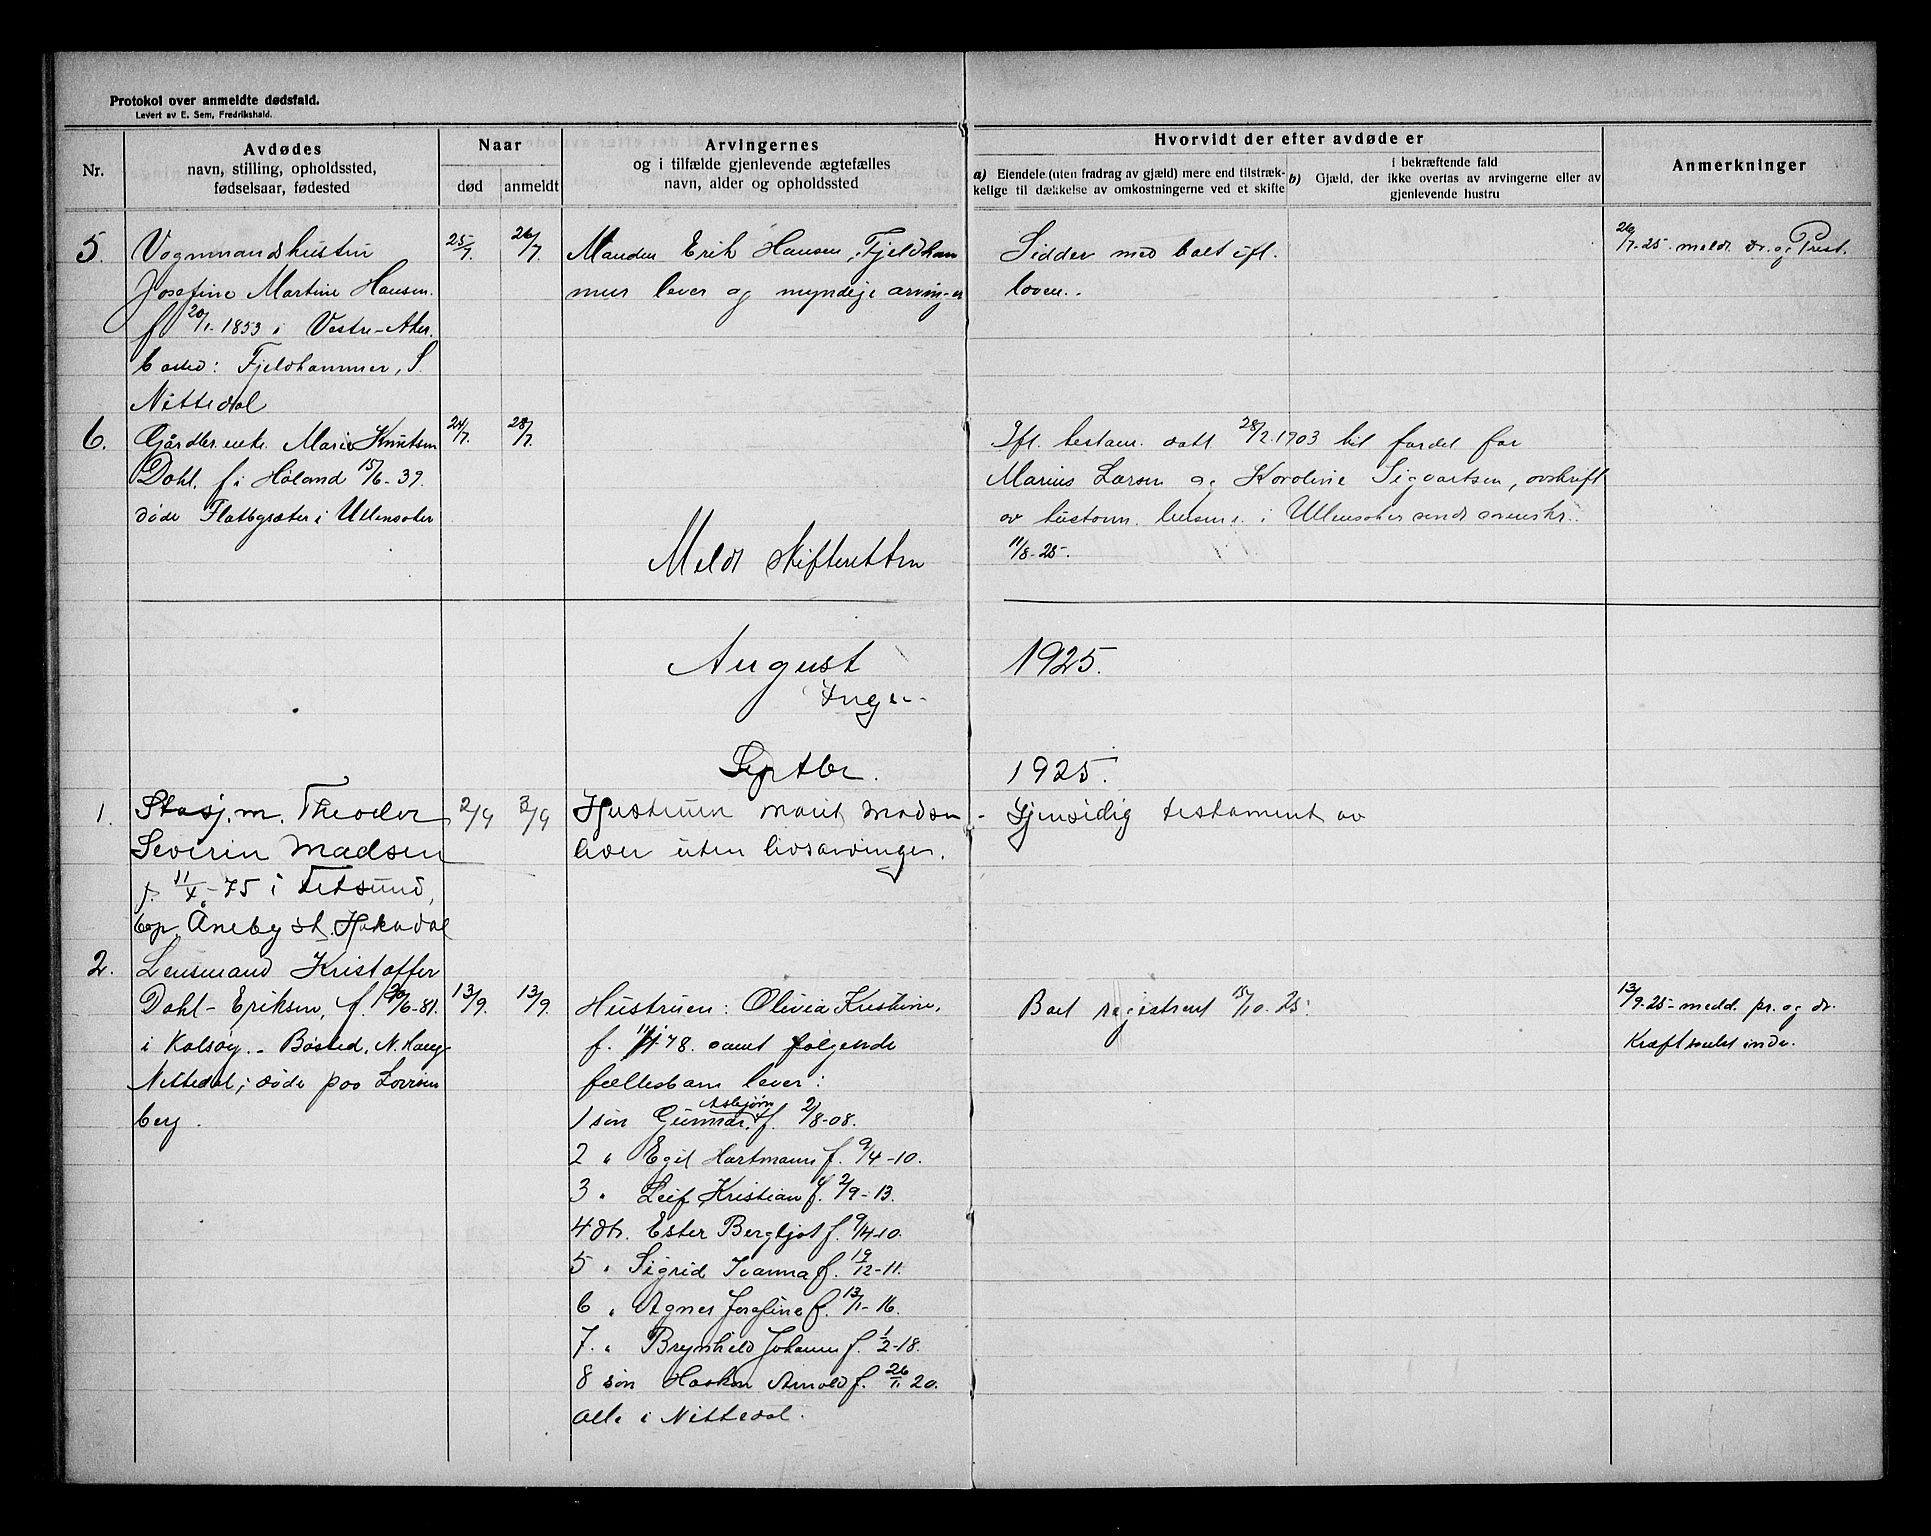 Protokol over anmeldte dødsfald.
Levert av E. Sem, Fredrikshald.
Nr.
Avdødes
navn, stilling, opholdssted,
fødselsaar, fødested
Naar
død
anmeldt
Arvingernes
og i tilfælde gjenlevende ægtefælles
navn, alder og opholdssted
Hvorvidt der efter avdøde er
a) Eiendele (uten fradrag av gjæld) mere end tilstræk-
kelige til dækkelse av omkostningerne ved et skifte
i bekræftende fald
b) Gjæld, der ikke overtas av arvingerne eller av
gjenlevende hustru
Anmerkninger
5.
Vognmandshustru
Josefine Martine Hansen.
f 20/1-1853 i Vestre-Aker.
bosted: Fjeldhammer, S.
Nittedal
25/7.
26/7.
Manden Erik Hansen, Fjeldham
mer lever og myndige arving-er
Sidder med boet ifl.
loven.
26/7-25. meldt dr. og Prest.
6.
Gårdbr. enke. Marie Knutsen
Dahl. f. i Høland 15/6-39.
døde Flatbygræter i Ullensaker
24/7.
28/7.
Meldt skifteretten
Ifl. testam. datt. 28/2.1903 til fordel for
Marius Larsen og Karoline Sigvartsen, avskrift
av testam. i Ullensaker sendt
11/8-25.
August 1925.
Ingen
Septbr. 1925.
1.
Stasj.m. Theodor
Severin Madsen
f. 11/4-75 i Fetsund,
bop. Åneby st. Hakadal
2/9
3/9
Hustruen Marit Madsen
lever uten livsarvinger.
- Gjensidig testament av
2.
Lensmand Kristoffer
Dahl-Eriksen, f. 20/6-81.
i Kolsøy. - Bosted, N. Haug
Nittedal; døde paa Lovisen
berg.
13/9.
13/9.
Hustruen: Olivia Kristine,
f. 11/1-78. samt følgende
fællesbarn lever:
1 søn Gunnar Asbjørn f. 2/8-08.
2 " Egil Hartmann f. 9/4-10.
3 " Leif Kristian f. 2/9-13.
4 dtr. Ester Bergljot f. 9/4-10.
5 " Sigrid Ivanna f. 19/12-11.
6 " Agnes Josefine f. 13/1-16.
7. " Brynhild Johanne f. 1/2-18.
8 søn Haakon Arnold f. 26/11 20.
alle i Nittedal.
Boet registrert 15/10.25.
13/9-25- meldt pr. og dr.